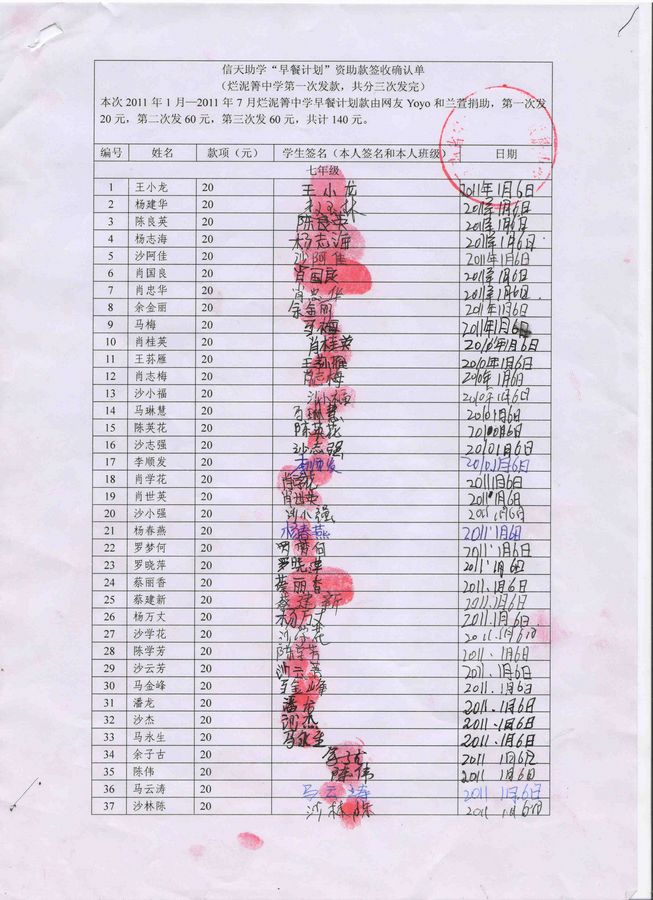 信天助学“早餐计划”资助款签收确认单
（烂泥箐中学第一次发款，共分三次发完）
本次 2011 年 1 月—2011 年 7 月烂泥箐中学早餐计划款由网友 Yoyo 和兰萱捐助，第一次发
20 元，第二次发 60 元，第三次发 60 元，共计 140 元。
编号 姓名 款项（元） 学生签名（本人签名和本人班级） 日期
七年级
1 王小龙 20 王小龙 2011年1月6日
2 杨建华 20 2011年1月6日
3 陈良英 20 陈良英 2011年1月6日
4 杨志海 20 杨志海 2011年1月6日
5 沙阿佳 20 沙阿佳 2011年1月6日
6 肖国良 20 肖国良 2011年1月6日
7 肖忠华 20 肖忠华 2011年1月6日.
8 余金丽 20 余金丽 2011年1月6日
9 马梅 20 马梅 2011年1月6日
10 肖桂英 20 肖桂英 2010年1月6日
11 王荪雁 20 2010年1月6日
12 肖志梅 20 肖志梅 2010年1月6日
13 沙小福 20 沙小福 2010年1月6日
14 马琳慧 20 马琳慧 20101月6日
15 陈英花 20 陈英花
16 沙志强 20 沙志强 2010.1月6日
17 李顺发 20 2010.1月6日
18 肖学花 20 肖学花 20111月6日
19 肖世英 20 肖世英 2011.1月6日
20 沙小强 20 沙小强 2011.1月6日
21 杨春燕 20 杨春燕 2011.1月6日
22 罗梦何 20 2011.1月6日
23 罗晓萍 20 罗晓萍 2011.1月6日
24 蔡丽香 20 蔡丽香 2011.1月6日
25 蔡建新 20 蔡建新 2011.1月6日
26 杨万丈 20 杨万丈 2011.1月6日
27 沙学花 20 沙学花 2011.1月6日
28 陈学芳 20 陈学芳 2011.1月6日
29 沙云芳 20 沙云芳 2011.1月6日
30 马金峰 20 马金峰 2011.1月6日
31 潘龙 20 潘龙 2011.1月6日
32 沙杰 20 沙杰 2011.1月6日
33 马永生 20 马永生 2011.1月6日
34 余子古 20 余子古 2011 1月6日
35 陈伟 20 陈伟 2011 1月6日
36 马云涛 20 马云涛 2011 1月6日
37 沙林陈 20 沙林陈 2011 1月6日